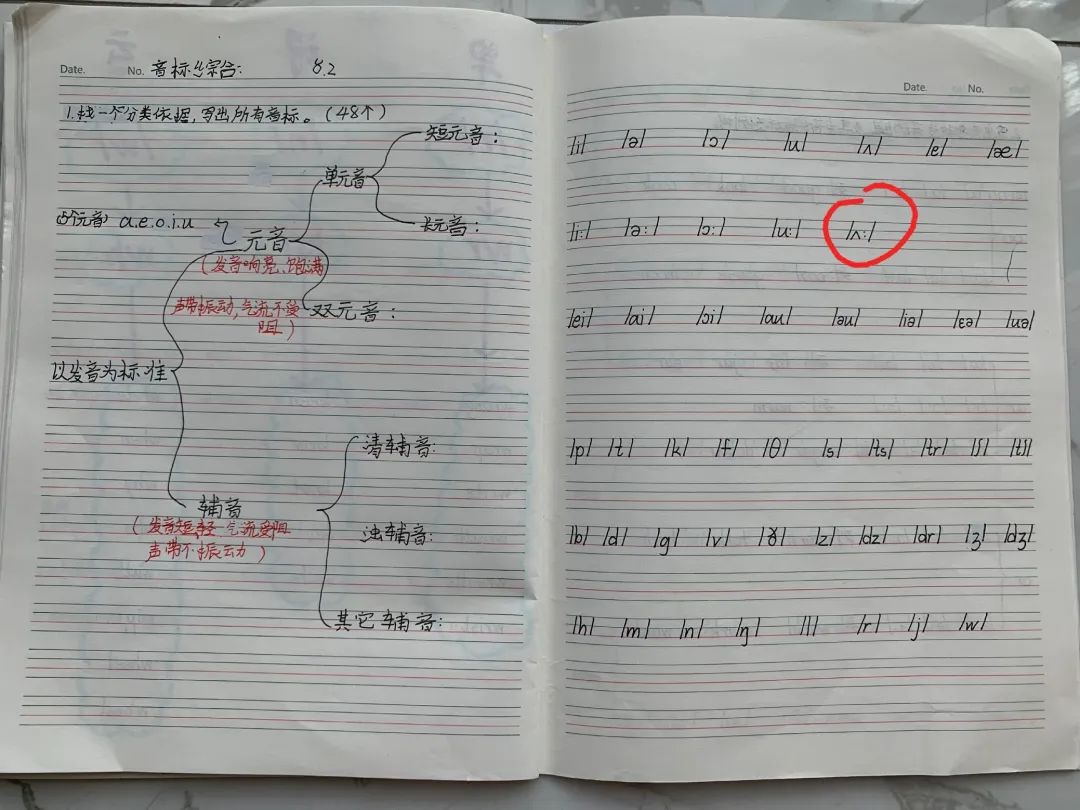 Date. No. 音标综合: 8.2
1.找一个分类依据,写出所有音标。(48个)
短元音:
单元音
长元音:
(5个元音) a.e.o.i.u
元音
(发音响亮、饱满
声带振动,气流不受
阻)
双元音:
以发音为标准
清辅音:
辅音
(发音短轻 气流受阻
声带不振动)
浊辅音:
其它辅音:
Date. No.
/i/ /ə/ /ɔ/ /u/ /ʌ/ /e/ /æ/
/i:/ /ə:/ /ɔ:/ /u:/ /ʌ:/
/ei/ /ai/ /ɔi/ /au/ /əu/ /iə/ /ɛə/ /uə/
/p/ /t/ /k/ /f/ /θ/ /s/ /ts/ /tr/ /ʃ/ /tʃ/
/b/ /d/ /g/ /v/ /ð/ /z/ /dz/ /dr/ /ʒ/ /dʒ/
/h/ /m/ /n/ /ŋ/ /l/ /r/ /j/ /w/